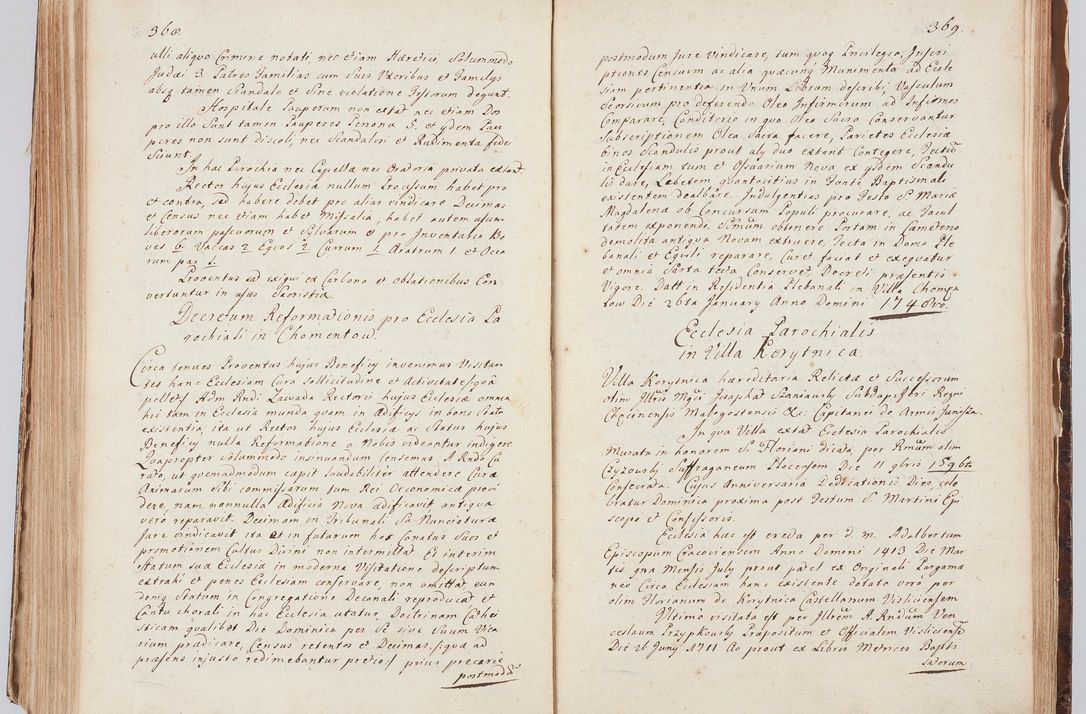 368.
ulli aliquo Crimine notati nec etiam Haeretici, Solummodo
Judaei 3 Patres Familias cum Suis Uxoribus et Familys
absq tamen Scandalo et Sine violatione Festorum degunt.
Hospitale Pauperum non extat nec etiam Dos
pro illo Sunt tamen Pauperes Persona 5. et ydem Pau
peres non sunt discoli, nec Scandalosi et Rudimenta fidei
Sciunt.
In hac Parochia nec Capellae nec Oratoria privata extant
Rector hujus Ecclesia nullum Processum habet pro
et contra, sed habere debet pro alias vindicare Decimas
et Census nec etiam habet Missalia, habet autem usum
liberorum pascuorum et Sylvarum et pro Inventario Bo
ves 6. Vaccas 2 Equos 2. Currum 1. Aratrum 1. et Occa
rum par 1.
Proventus sat exigui ex Carbona et oblationibus Con
vertuntur in usus Sacristia.
Decretum Reformationis pro Ecclesia Pa
rochiali in Chomentow.
Circa tenues Proventus hujus Beneficy invenimus Visitan
tes hanc Ecclesiam Cura sollicitudine et Activitate /:qua
pollet:/ Adm Rndi Zawada Rectoris hujus Ecclesiae omnia
hic tam in Ecclesia munda quam in Adificys in bono Statu
existentia, ita ut Rector hujus Ecclesia ac Status hujus
Beneficy nulla Reformatione a Nobis videantur indigere
Quapropter Solummodo insinuandum Censemus A Rndo Cu
rato, ut quemadmodum capit laudabiliter attendere Cura
Animarum Sibi commissarum tum Rei Oeconomica provi
dere, nam nonnulla Adificia Nova adificavit antiqua
vero reparavit. Decimam in Tribunali Sa Nunciatura
Jure vindicavit ita et in futurum hos Conatus Suos et
promotionem Cultus Divini non intermittat Et interim
Statum sua Ecclesia in moderna Visitatione descriptum
extrahi et penes Ecclesiam conservare, non omittat eun
demq Statum in Congregatione Decanali reproducat et
Cantu chorali in hac Ecclesia utatur, Doctrinam Cathe
sticam qualibet Die Dominica per Se sive Suum Vica
rium praedicare, Census retentos et Decimas /:qua ad
praesens injusto redimebantur pretio:/ prius precarie
postmodum
369.
postmodum Jure vindicare, tum quoq Privilegia, Inscri
ptiones Censuum ac alia quacunq Munimenta ad Eccle
siam pertinentia in Unum Librum describi, Vasculum
Seorsivum pro deferendo Oleo Infirmorum ad Infirmos
Comparare, Conditorio in quo Olea Sacra Conservantur
Subscriptionem Olea Sacra facere, Parietes Ecclesia
binos Scandulis prout aly duo extant Contegere, Tectum
in Ecclesiam tum et Ossuarium Nova ex ysdem Scandu
lis dare, Lebetem quantocitius in Fonte Baptismali
existentem dealbare, Indulgentias pro Festo S. Maria
Magdalena ob Concursum Populi procurare, ac Facul
tatem exponendi SSmum obtinere Portam in Cameterio
demolita antiqua Novam extruere, Tecta in Domo Ple
banali et Equili reparare, Curet faciat et exequatur
et omnia Sarta tecta Conservet. Decreti praesentis
Vigore. Datt in Residentia Plebanali in Villa Chomen
tow Die 26ta January Anno Domini 1748vo.
Ecclesia Parochialis
in Villa Korytnica.
Villa Korytnica haereditaria Relictae et Successorum
olim Illris Mgci Josaphat Szaniawski Subdapiferi Regni
Chęcinensis Malogostensis &c: Capitanei de Armis Junosza.
In qua Villa extat Ecclesia Parochialis
Murata in honorem S. Floriani dicata, per Rmum olim
Czyzowski Suffraganeum Plocensem Die 11 9bris 1696to
Consecrata. Cujus Anniversaria Dedicationis Dies cele
bratur Dominica proxima post Festum S. Martini Epi
scopi et Confessoris.
Ecclesia hac est erecta per D. m. Adalbertum
Episcopum Cracoviensem Anno Domini 1413 Die Mar
tis 9na Mensis July prout patet ex Originali Pargame
neo Circa Ecclesiam hanc existente dotata vero per
olim Florianum de Korytnica Castellanum Visliciensem
Ultimo visitata est per Illrem A. Rndum Ven
ceslaum Przypkowski Praepositum et Officialem Visliciensem
Die 26 Juny 1711 Ao prout ex Libris Metrices Bapti
satorum